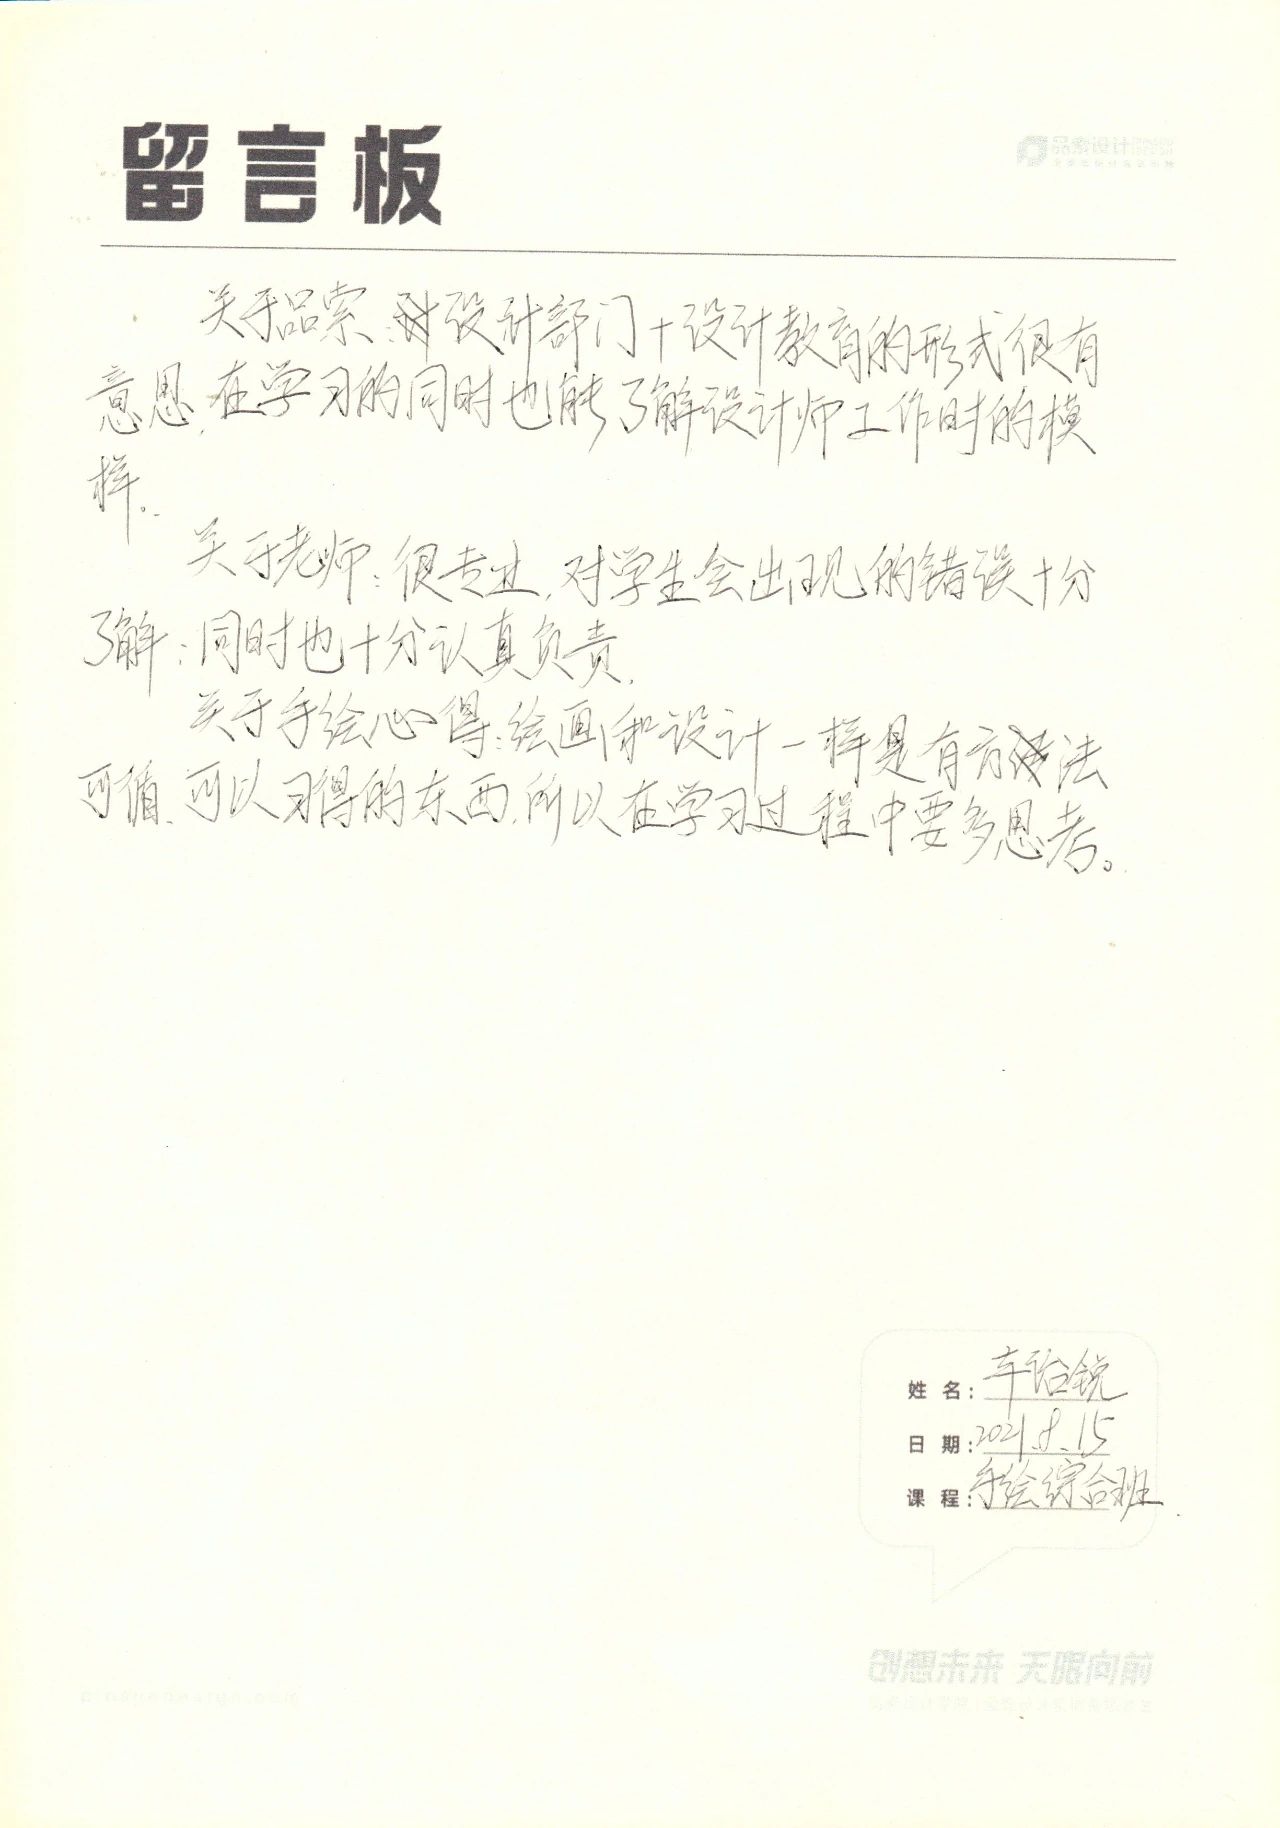 留言板
品索设计
关于品索:设计部门+设计教育的形式很有
意思,在学习的同时也能了解设计师工作时的模
样。
关于老师:很专业,对学生会出现的错误十分
了解;同时也十分认真负责.
关于手绘心得:绘画和设计一样是有方法
可循、可以习得的东西,所以在学习过程中要多思考。
姓名:车诒锐
日期:2021.8.15
课程:手绘综合班
创想未来 无限向前